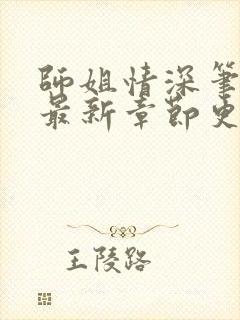 師姐情深筆
最新章節史
王陵路